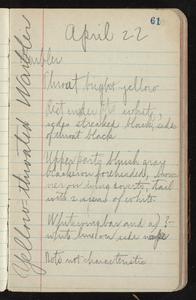 61
April 22
Yellow-throated Warbler
Throat bright yellow
Rest under pt white,
sides streaked black, side
of throat black
Upper parts bluish gray
black on forehead,
on wing coverts, tail
with areas of white.
White wing bar and
white line on side
Note not characteristic